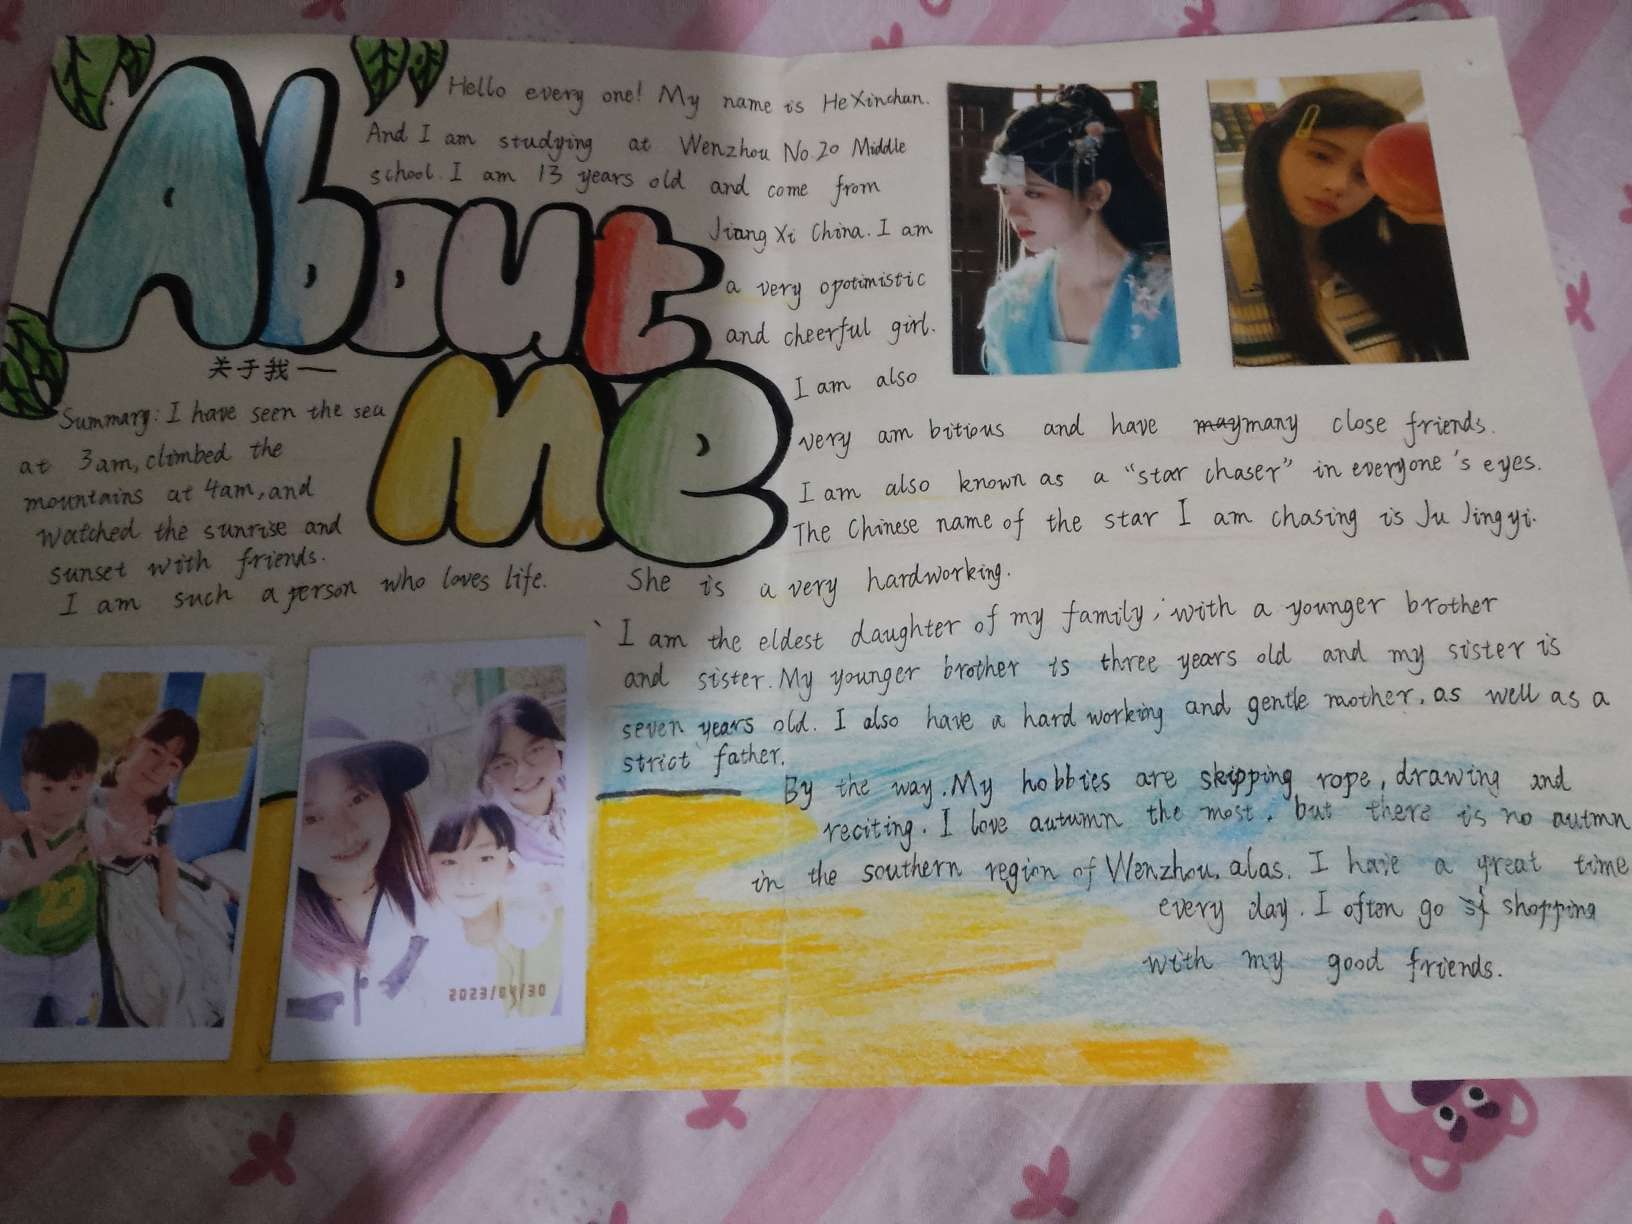 About
Me
关于我一
Hello every one! My name is HeXinchan.
And I am studying at Wenzhou No.20 Middle
school. I am 13 years old and come from
Jiang Xi China. I am
a very opotimistic
and cheerful girl.
I am also
very am bitious and have may many close friends.
I am also known as a "star chaser" in everyone's eyes.
The Chinese name of the star I am chasing is Ju Jingyi.
She is a very hardworking.
I am the eldest daughter of my family, with a younger brother
and sister. My younger brother is three years old and my sister is
seven years old. I also have a hard working and gentle mother, as well as a
strict father.
By the way. My hobbies are skipping rope, drawing and
reciting. I love autumn the most, but there is no autmn
in the southern region of Wenzhou, alas. I have a great time
every day. I often go shopping
with my good friends.
Summary: I have seen the sea
at 3am, climbed the
mountains at 4am, and
watched the sunrise and
sunset with friends.
I am such a person who loves life.
23